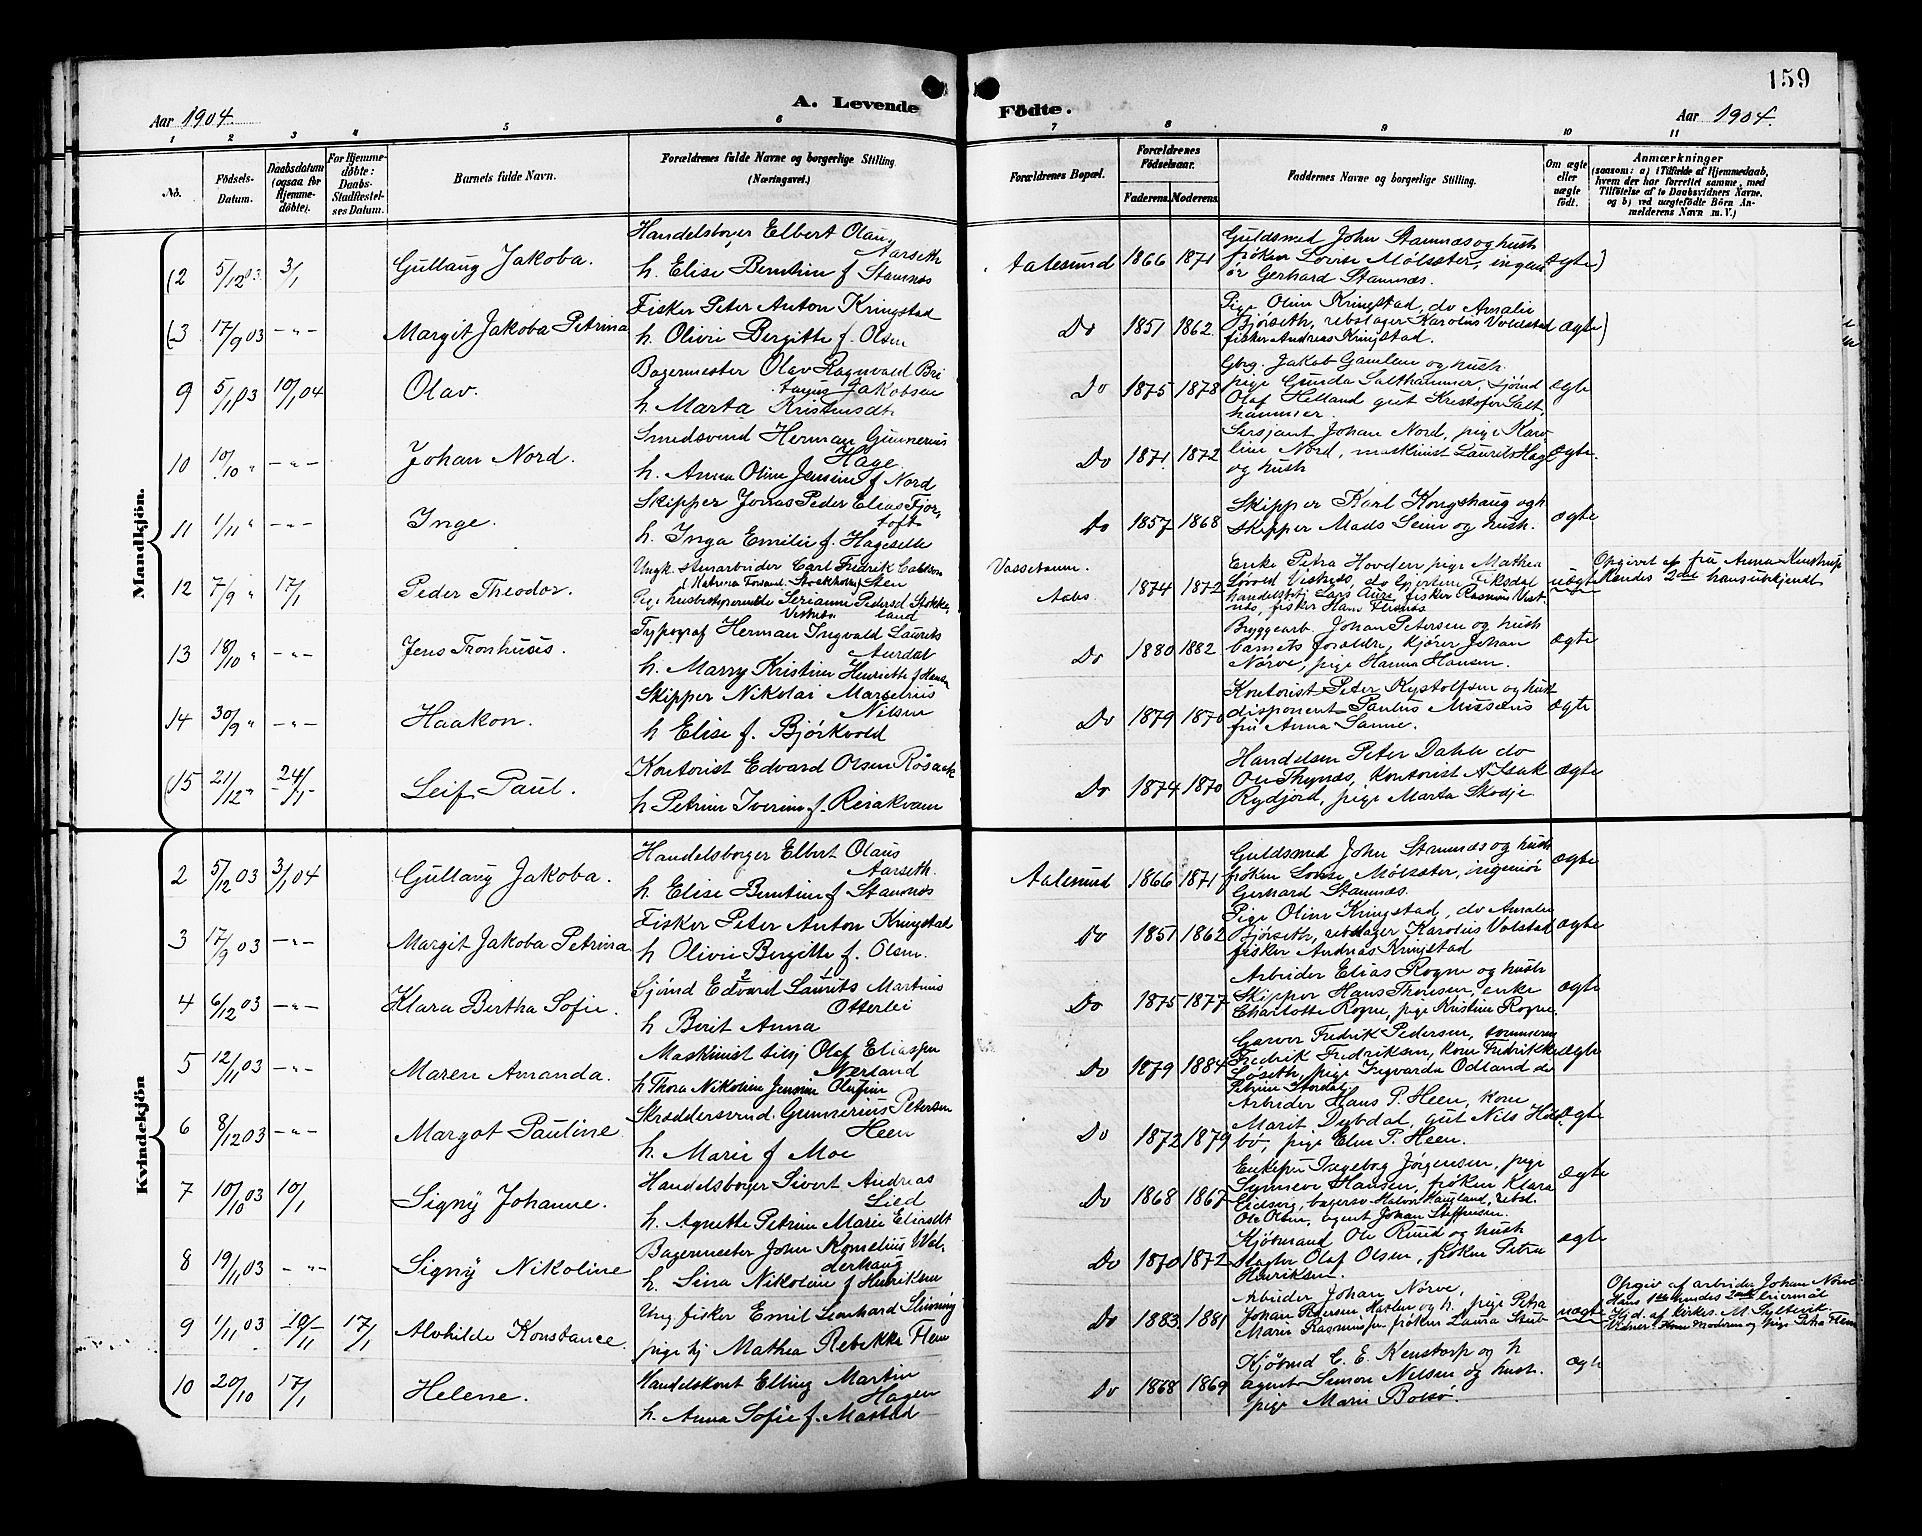 159
A. Levende
Födte.
Aar 1904.
Aar 1904.
1 2 3 4 5 6
7 8 9 10 11
No.
Födsels-Datum.
Daabsdatum (ogsaa for Hjemmedöbte).
For Hjemmedöbte: Daabs-Stadfæstelses Datum.
Barnets fulde Navn.
Forældrenes fulde Navne og borgerlige Stilling (Næringsvei.)
Forældrenes Bopæl.
Forældrenes Födselsaar.
Faderens. Moderens.
Faddernes Navne og borgerlige Stilling.
Om ægte eller uægte födt.
Anmærkninger
(saasom: a) i Tilfælde af Hjemmedaab, hvem der har forrettet samme, med Tilföielse af to Daabsvidners Navne. og b) ved uægtefödte Börn Anmelderens Navn m. V.)
Mandkjön.
(2 5/12 03 3/1 Gullaug Jakoba. Handelsborger Elbert Olaus Aarseth
h. Elise Berntine f Stamnes
Aalesund 1866 1871 Guldsmed John Stamnæs og hustr
frøken Lovise Mølsæter, ingeniør Gerhard Stamnæs. ægte)
(3 17/9 03 -"- Margit Jakoba Petrina Fisker Peter Anton Kringstad
h. Olivie Bergitte f. Olsen
Do 1851 1862 Pige Oline Kringstad, do Amalie
Bjørseth, rebslager Karolius Voldstad
fisker Andreas Kringstad. ægte)
9 5/1 03 10/1 04 Olav. Bagermester Olav Ragnvald
Jakobsen
h. Marta Kristensdt
Do 1875 1878 Gbrg. Jakob Gamlem og hustr.
pige Gunda Salthammer, sjømd
Olaf Helland gut Kristofer Salthammer. ægte
10 10/10 " -"- Johan Nord. Smedsvend Herman Gunnerius
Hage
h. Anna Oline Jensine f Nord
Do 1871 1872 Sersjant Johan Nord, pige Karoline Nord, maskinist Laurits Hage
og hustr ægte.
11 1/11 " -"- Inge. Skipper Jonas Peder Elias Fjørtoft
h. Inga Emilie f. Hageselle
Do 1857 1868 Skipper Karl Kongshaug og h
Skipper Mads Seim og hustr. ægte
12 7/9 " 17/1 Peder Theodor. Ungk. stenarbeider Carl Fredrik
Sten
Pige husbestyrerinde Serianne Pedersd Stokkeland
Aabs. 1874 1872 Enke Petra Hovden, pige Mathea
fisker Rasmus
fisker Hans uægte
Opgivet af fru Anna
13 18/10 " -"- Jens Tronhuus. Typograf Herman Ingvald Laurits
Aurdal
h. Marry Kristine Henriette f Hansen
Do 1880 1882 Bryggearb. Johan Petersen og hustr
barnets forældre, kjører Johan
Nørve, pige Hanna Hansen. ægte
14 30/9 " -"- Haakon. Skipper Nikolai Marselius
Nilsen
h Elise f. Bjørkvold
Do 1879 1870 Kontorist Peter Rystolfsen og hustr
disponent Paulus
fru Anna Sanne. ægte
(15 21/12 " 24/1 Leif Paul. Kontorist Edvard Olsen Røsæk
h Petrine Iverine f. Reiakvam
Do 1874 1870 Handelsm Peter Dahle do
Ole Thynæs, kontorist
Rydjord, pige Marta Skodje ægte
Kvindekjön
2 5/12 03 3/1 04 Gullaug Jakoba. Handelsborger Elbert Olaus
Aarseth.
h. Elise Berntine f Stamnes
Aalesund 1866 1871 Guldsmed John Stamnæs og hustr
frøken Lovise Mølsæter, ingeniør
Gerhard Stamnæs. ægte
3 17/9 03 -"- Margit Jakoba Petrina Fisker Peter Anton Kringstad
h Olivie Bergitte f. Olsen.
Do 1851 1862 Pige Oline Kringstad, do Amalie
Bjørseth, rebslager Karolius Volstad
fisker Andreas Kringstad ægte
4 6/12 03 -"- Klara Bertha Sofie. Sjømd Edvard Laurits Martinus
Otterlei
h Berit Anna
Do 1875 1877 Arbeider Elias Rogne og hustr
Skipper Hans Thoresen, enke
Charlotte Rogne, pige Kristine Rogne. ægte
5 12/11 03 -"- Maren Amanda. Maskinist Olaf Eliassen
Nærland
h Thora Nikoline Jensine Olufine
Do 1879 1884 Garver Fredrik Pedersen, tømmerm
Fredrik Fredriksen, kone Fredrikke
Løseth, pige Ingvarda Ødland do
Petrine Stordal. ægte
6 8/12 03 -"- Margot Pauline. Skræddersvend. Gunnerius Petersen
Heen
h. Marie f Moe
Do 1872 1879 Arbeider Hans P. Heen, kone
Marit Dybdal, gut Nils
pige Elen P. Heen. ægte
7 10/10 03 10/1 Signÿ Johanne. Handelsborger Sivert Andreas
Lied
h. Agnette Petrine Marie Eliasdt
Do 1868 1867 Enkefru Ingeborg Jørgensen, pige
Synneve Hansen, frøken Klara
Eidsvig, bagersv. Halvor Haugland, rebsl.
Ole Olsen, agent Johan Steffensen. ægte
8 19/11 03 -"- Signÿ Nikoline Bagermester John Kornelius Valderhaug
h. Sina Nikoline f Henriksen
Do 1870 1872 Kjøbmand Ole Ruud og hustr
Slagter Olaf Olsen, frøken Petra
Henriksen. ægte
9 1/11 03 10/11 17/1 Alvhilde Konstance. Ung. fisker Emil Leonhard Slinning
pige hj Mathea Rebekka Flem
Do 1883 1881 Arbeider Johan Nørve,
Johan Petersen og h. pige Petra
Marie Rasmussen frøken Laura uægte
Opgiv af arbeider Johan Nørve.
Hans 1ste hendes 2det leiermål
Hjd. af kirkes. M. Syltevik
Vidner: Moderen og pige Petra Flem
10 20/10 17/1 Helene. Handelskont Elling Martin
Hagen
h. Anna Sofie f. Mastad
Do 1868 1869 Kjøbmd C. E. Kenstorp og h
agent Simon Nilsen og hustr.
pige Marie Bolsø. ægte